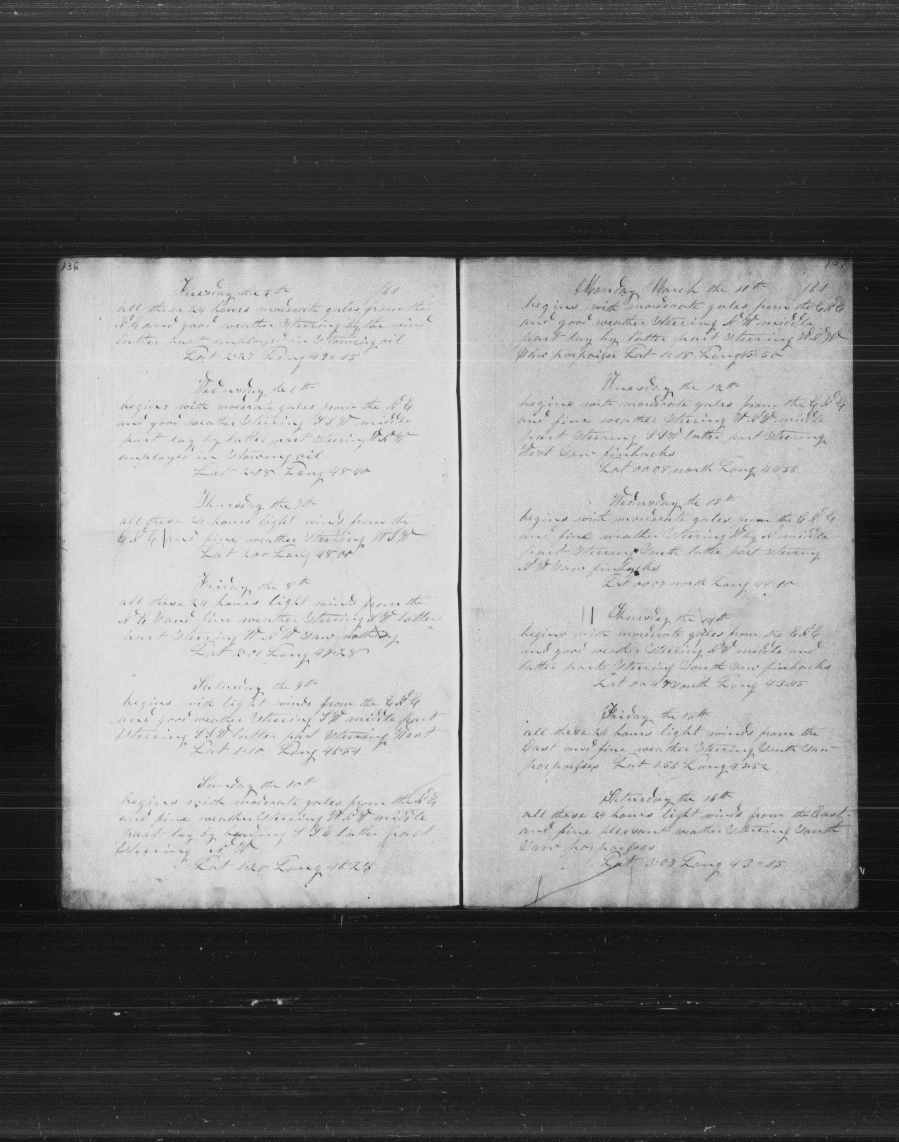 136
Tuesday the 5th 161
all these 24 hours moderate gales from the
N E and good weather Steering by the wind
latter part employed in Stowing oil
Lat 2 27 Long 49 15
Wednesday the 6th
begins with moderate gales from the N E
and good weather Steering S S W middle
part lay by latter part Steering W N W
employed in Stowing oil
Lat 2 08 Long 48 40
Thursday the 7th
all these 24 hours light winds from the
E N E and fine weather Steering W S W
Lat 2 00 Long 48
Friday the 8th
all these 24 hours light winds from the
N E and fine weather Steering S W latter
part Steering W N W Saw nothing
Lat 2 01 Long 47 28
Saturday the 9th
begins with light winds from the E N E
and good weather Steering S W middle part
Steering S S W latter part Steering West
Lat 1 10 Long 46 54
Sunday the 10th
begins with moderate gales from the N E
and fine weather Steering W N W middle
part lay by heading S S E latter part
Steering N W
Lat 1 20 Long 46 24
137
Monday March the 11th 161
begins with moderate gales from the E N E
and good weather Steering N W middle
part lay by latter part Steering W N W
Saw porpoise Lat 1 18 Long 45 50
Tuesday the 12th
begins with moderate gales from the E N E
and fine weather Steering W N W middle
part Steering S S W latter part Steering
West Saw finbacks
Lat 00 08 north Long 44 52
Wednesday the 13th
begins with moderate gales from the E N E
and fine weather Steering W by N middle
part Steering South latter part Steering
N W Saw finbacks
Lat 00 07 north Long 44 10
Thursday the 14th
begins with moderate gales from the E N E
and good weather Steering N W middle and
latter part Steering South Saw finbacks
Lat 00 47 South Long 43 45
Friday the 15th
all these 24 hours light winds from the
East and fine weather Steering South Saw
porpoises Lat 1 56 Long 43 52
Saturday the 16th
all these 24 hours light winds from the East
and fine pleasant weather Steering South
Saw porpoises
Lat 3 07 Long 43 15